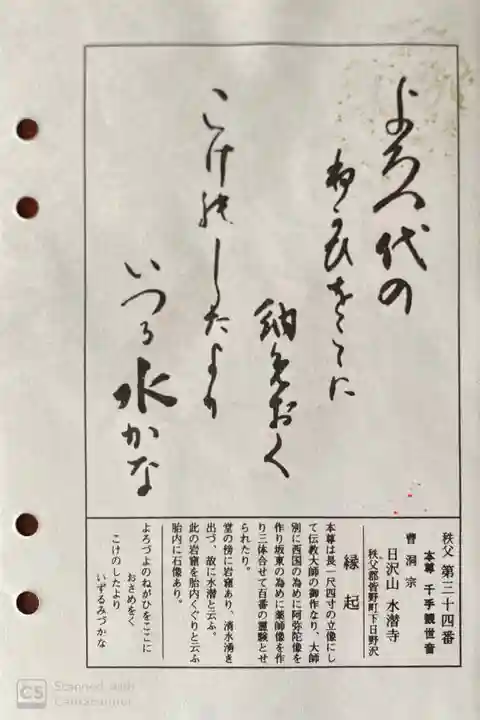 よろづ代の
ねかひをここに
納めおく
こけのしたより
いつる水かな
秩父 第三十四番
本尊 千手観世音
曹洞宗
日沢山 水潜寺
秩父郡皆野町下日野沢
縁起
本尊は長一尺四寸の立像にし
て伝教大師の御作なり、大師
別に西国の為めに阿弥陀像を
作り坂東の為めに薬師像を作
り三体合せて百番の霊験とせ
られたり。
堂の傍に岩窟あり、清水湧き
出づ、故に水潜と云ふ。
此の岩窟を胎内くぐりと云ふ
胎内に石像あり。
よろづよのねがひをここに
おさめをく
こけのしたより
いずるみづかな
CS Scanned with
CamScanner